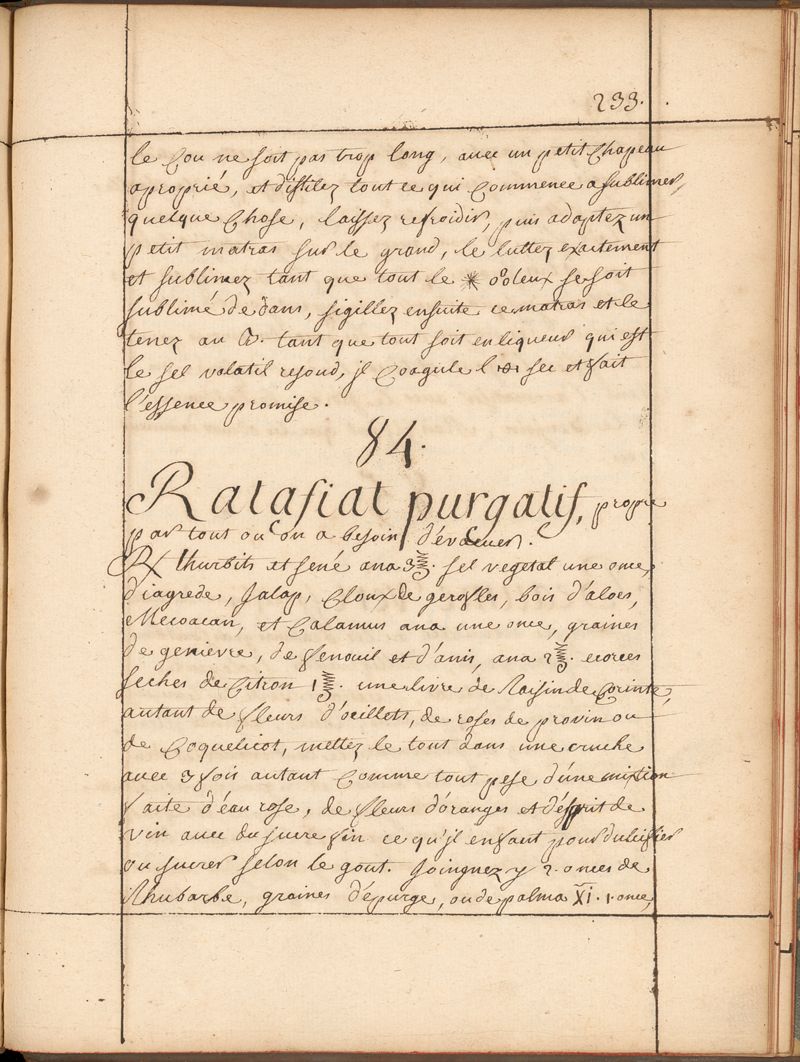 233.
le Cou ne soit pas trop long, avec un petit Chapeau
aproprié, et distilez tout ce qui Commence a sublimer,
quelque Chose, laissez refroidir, puis adaptez un
petit matras sur le grand, le luttez exactement
et sublimez tant que tout le se soit
sublimé dedans, sigillez ensuite ce matras et le
tenez au tant que tout soit en liqueur qui est
le sel volatil resoud, jl Coagule l' sec et fait
l'essence promise.
84.
Ratafiat purgatif, propre
par tout ou on a besoin d'évacuer.
℞ thurbits et sené ana 3 ℥. sel vegetal une once,
diagrede, Jalap, Cloux de gerofles, bois d'aloes,
Mecoacan, et Calamus ana une once, graines
de genievre, de fenouil et d'anis, ana 2 ℥. ecorces
seches de Citron 1 ℥. une livre de Raisin de Corinte,
autant de fleurs d'oeillets, de roses de provin ou
de Coquelicot, mettez le tout dans une cruche
avec 3 fois autant Comme tout pese d'une mixtion
faite d'eau rose, de fleurs d'oranges et d'esprit de
vin avec du sucre fin ce qu'jl en faut pour dulcifier
ou sucrer selon le gout. Joingnez y 2. onces de
Rhubarbe, graines d'épurge, ou de palma XI. 1. once,